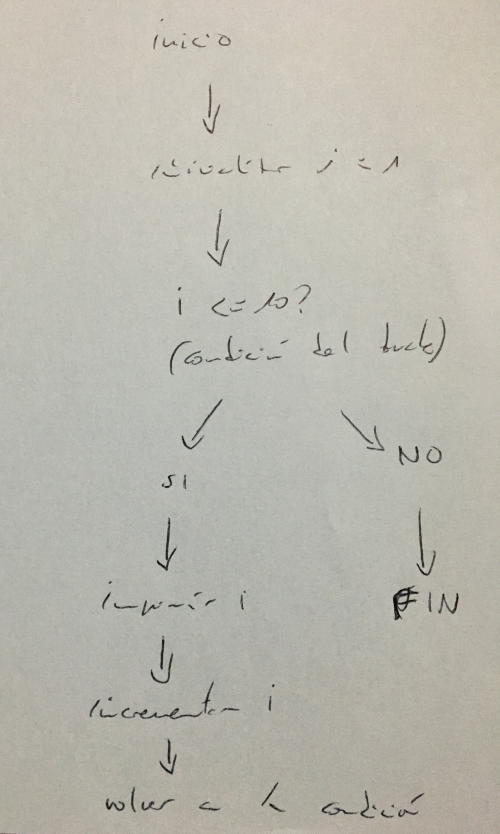 inicio
inicializar i = 1
i <= 10?
(condición del bucle)
SI
NO
imprimir i
FIN
incrementar i
volver a la condición